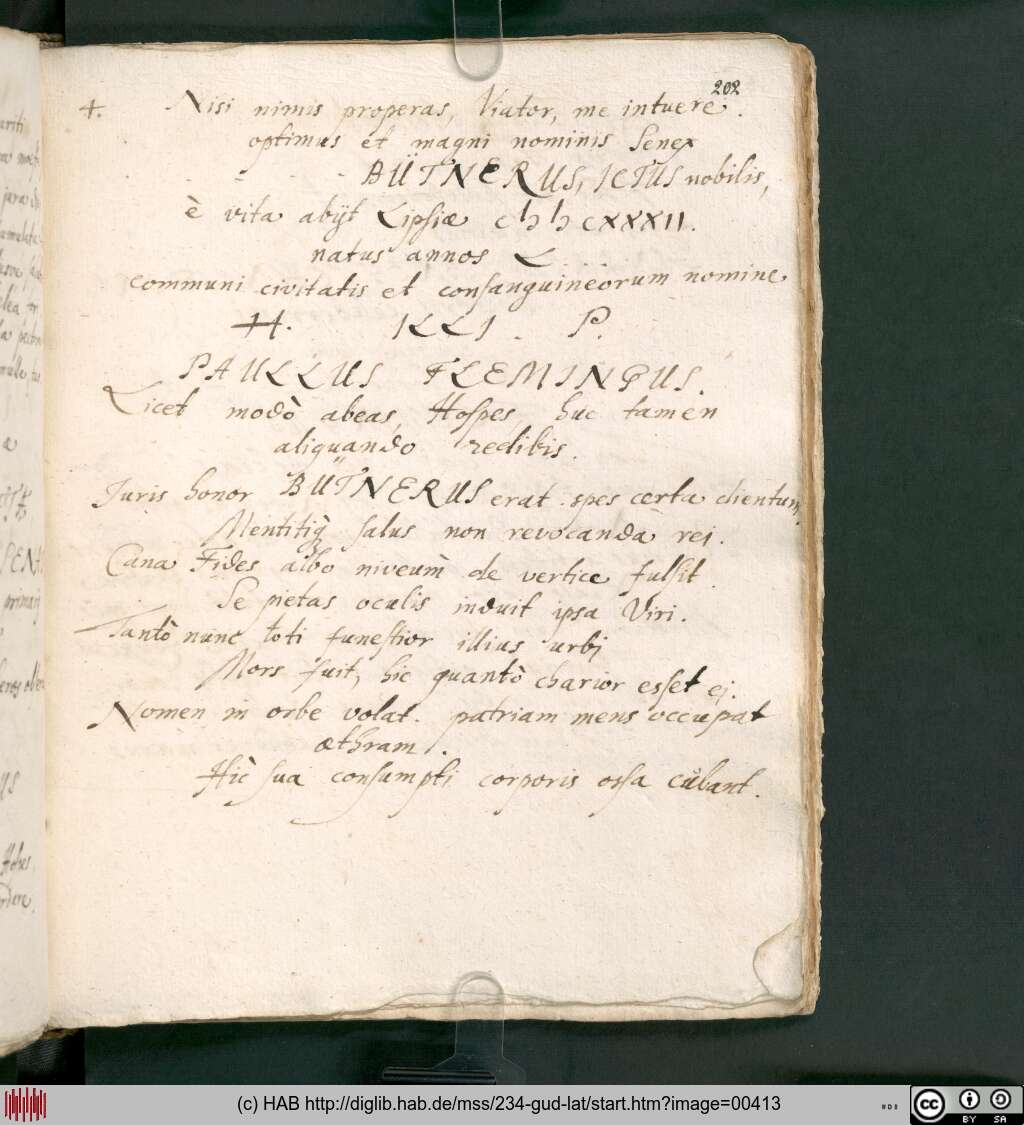 202
4. Nisi nimis properas, Viator, me intuere.
optimus et magni nominis Senex
. . . . . BÜTNERUS, ICTUS nobilis,
è vita abijt Lipsiæ cIↃ IↃ cXXXII.
natus annos L . . . .
communi civitatis et consanguineorum nomine
H. ILLI . P.
PAULLUS FLEMINGUS.
Licet modò abeas, Hospes, huc tamen
aliquando redibis.
Juris honor BÜTNERUS erat. spes certa clientum,
Mentitiq; salus non revocanda rei.
Cana Fides albo niveùm de vertice fulsit.
Se pietas oculis induit ipsa Viri.
Tantò nunc toti funestior illius urbj
Mors fuit, hic quantò charior esset ej.
Nomen in orbe volat. patriam mens occupat
æthram.
Hic sua consumpti corporis ossa cubant.
(c) HAB http://diglib.hab.de/mss/234-gud-lat/start.htm?image=00413
cc BY SA